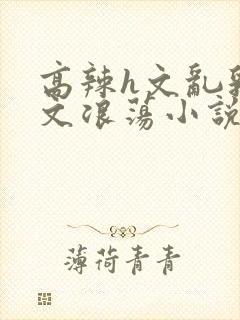 高辣h文亂
文浪蕩小說
薄荷青青